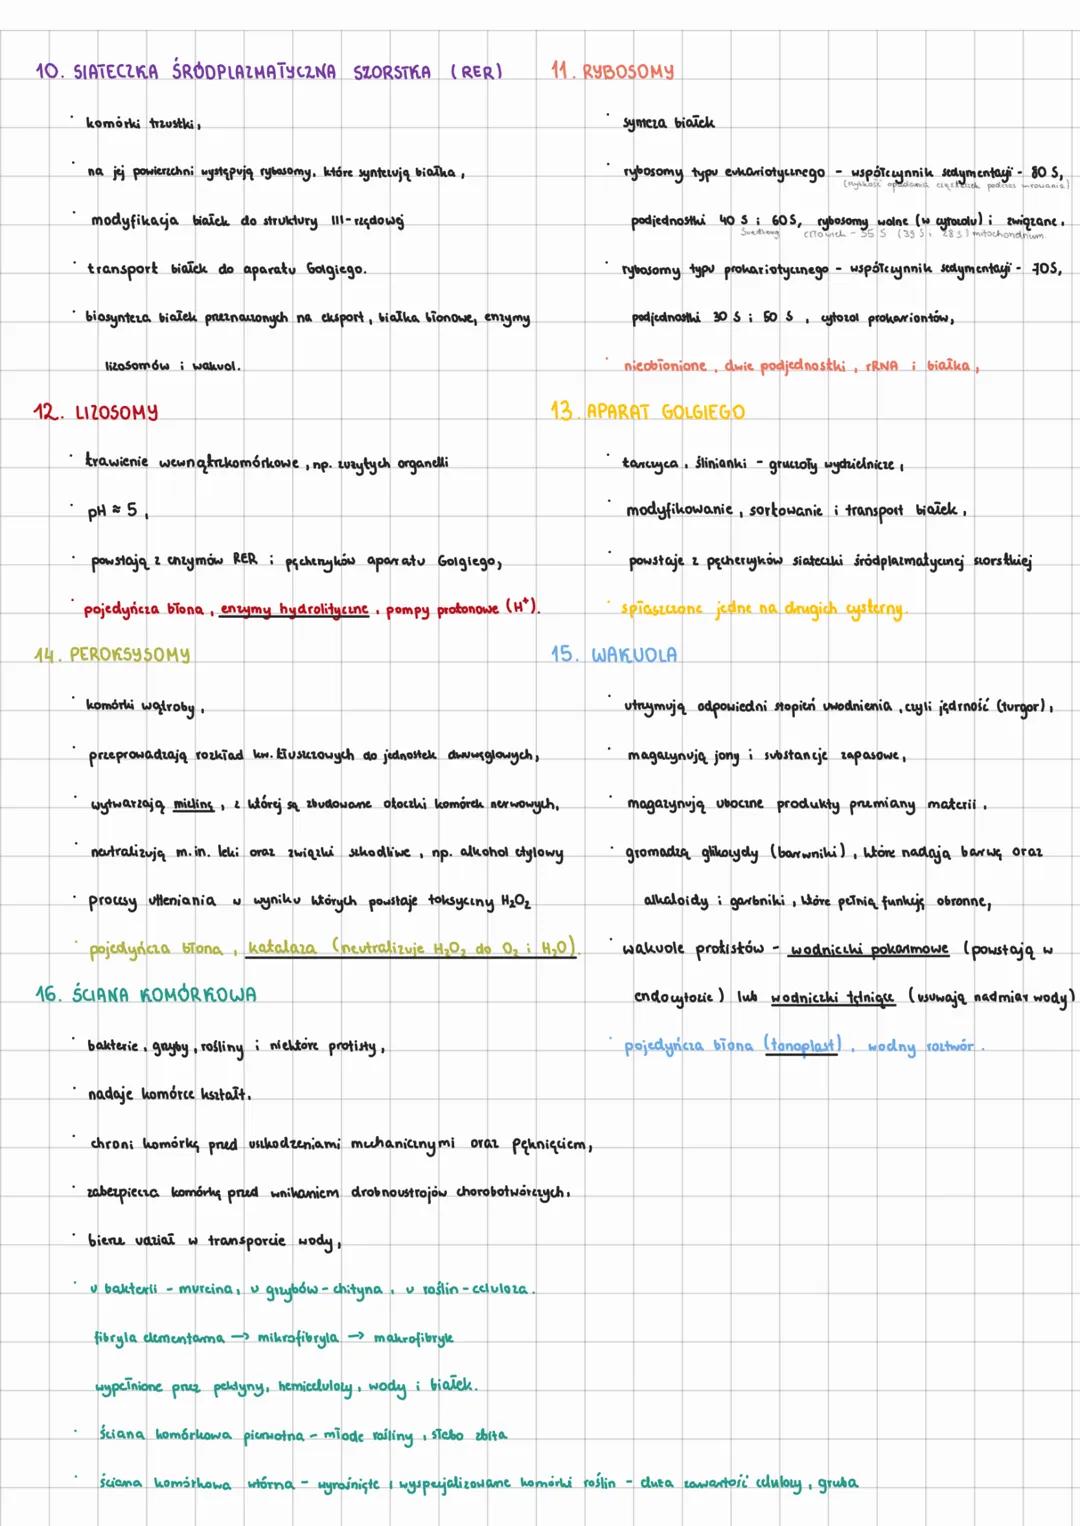 10. SIATECZKA ŚRÓDPLAZMATYCZNA SZORSTKA (RER)
· komórki trzustki,
· na jej powierzchni występują rybosomy, które syntezują białka,
· modyfikacja białek do struktury III-rzędowej
· transport białek do aparatu Golgiego.
· biosynteza białek przeznaczonych na eksport, białka błonowe, enzymy
lizosomów i wakuol.
11. RYBOSOMY
· synteza białek
· rybosomy typu eukariotycznego - współczynnik sedymentacji - 80 S,
(szybkość opadania cząsteczek podczas wirowania)
podjednostki 40 S i 60 S, rybosomy wolne (w cytozolu) i związane.
Svedberg człowiek - 55 S (39 S i 28 S) mitochondrium.
· rybosomy typu prokariotycznego - współczynnik sedymentacji - 70S,
podjednostki 30 S i 50 S, cytozol prokariontów,
· nieobłonione, dwie podjednostki, rRNA i białka,
12. LIZOSOMY
· trawienie wewnątrzkomórkowe, np. zużytych organelli
· pH ≈ 5,
· powstają z enzymów RER i pęcherzyków aparatu Golgiego,
· pojedyńcza błona, enzymy hydrolityczne, pompy protonowe (H⁺).
13. APARAT GOLGIEGO
· tarczyca, ślinianki - gruczoły wydzielnicze,
· modyfikowanie, sortowanie i transport białek,
· powstaje z pęcherzyków siateczki śródplazmatycznej szorstkiej
· spłaszczone jedne na drugich cysterny.
14. PEROKSYSOMY
· komórki wątroby,
· przeprowadzają rozkład kw. tłuszczowych do jednostek dwuwęglowych,
· wytwarzają mielinę, z której są zbudowane otoczki komórek nerwowych,
· neutralizują m.in. leki oraz związki szkodliwe, np. alkohol etylowy
· procesy utleniania w wyniku których powstaje toksyczny H₂O₂
· pojedyńcza błona, katalaza (neutralizuje H₂O₂ do O₂ i H₂O).
15. WAKUOLA
· utrzymują odpowiedni stopień uwodnienia, czyli jędrność (turgor),
· magazynują jony i substancje zapasowe,
· magazynują uboczne produkty przemiany materii.
· gromadzą glikozydy (barwniki), które nadają barwę oraz
alkaloidy i garbniki, które pełnią funkcję obronne,
· wakuole protistów - wodniczki pokarmowe (powstają w
endocytozie) lub wodniczki tętniące (usuwają nadmiar wody)
· pojedyńcza błona (tonoplast), wodny roztwór.
16. ŚCIANA KOMÓRKOWA
· bakterie, grzyby, rośliny i niektóre protisty,
· nadaje komórce kształt.
· chroni komórkę przed uszkodzeniami mechanicznymi oraz pęknięciem,
· zabezpiecza komórkę przed wnikaniem drobnoustrojów chorobotwórczych.
· bierze udział w transporcie wody,
· u bakterii - mureina, u grzybów - chityna, u roślin - celuloza.
fibryla elementarna → mikrofibryla → makrofibryle
wypełnione przez pektyny, hemicelulozy, wody i białek.
· ściana komórkowa pierwotna - młode rośliny, słabo zbita
· ściana komórkowa wtórna - wyrośnięte i wyspecjalizowane komórki roślin - duża zawartość celulozy, gruba